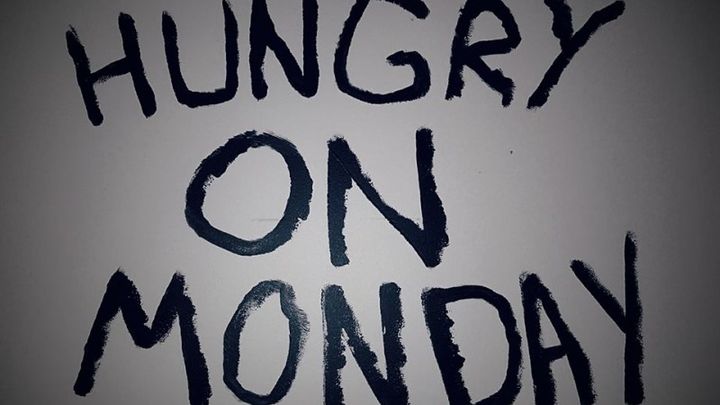 HUNGRY
ON
MONDAY